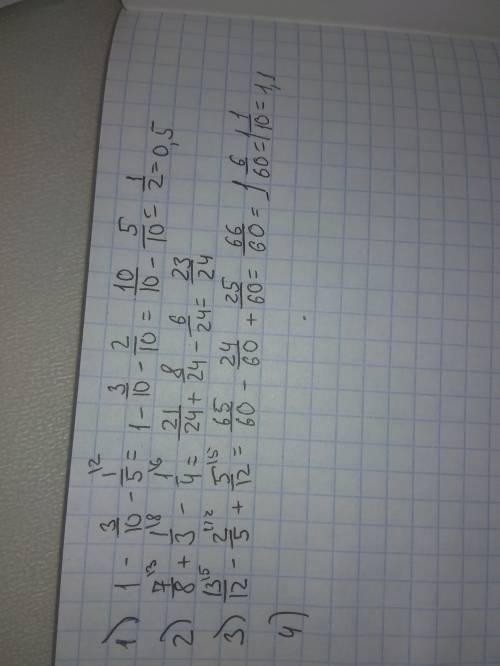 1) 1 - 3/10 - 1/5 ^12 = 1 - 3/10 - 2/10 = 10/10 - 5/10 = 1/2 = 0,5
2) 7/8 ^13 + 1/3 ^18 - 1/4 ^16 = 21/24 + 8/24 - 6/24 = 23/24
3) 13/12 ^15 - 2/5 ^112 + 5/12 ^15 = 65/60 - 24/60 + 25/60 = 66/60 = 1 6/60 = 1 1/10 = 1,1
4)